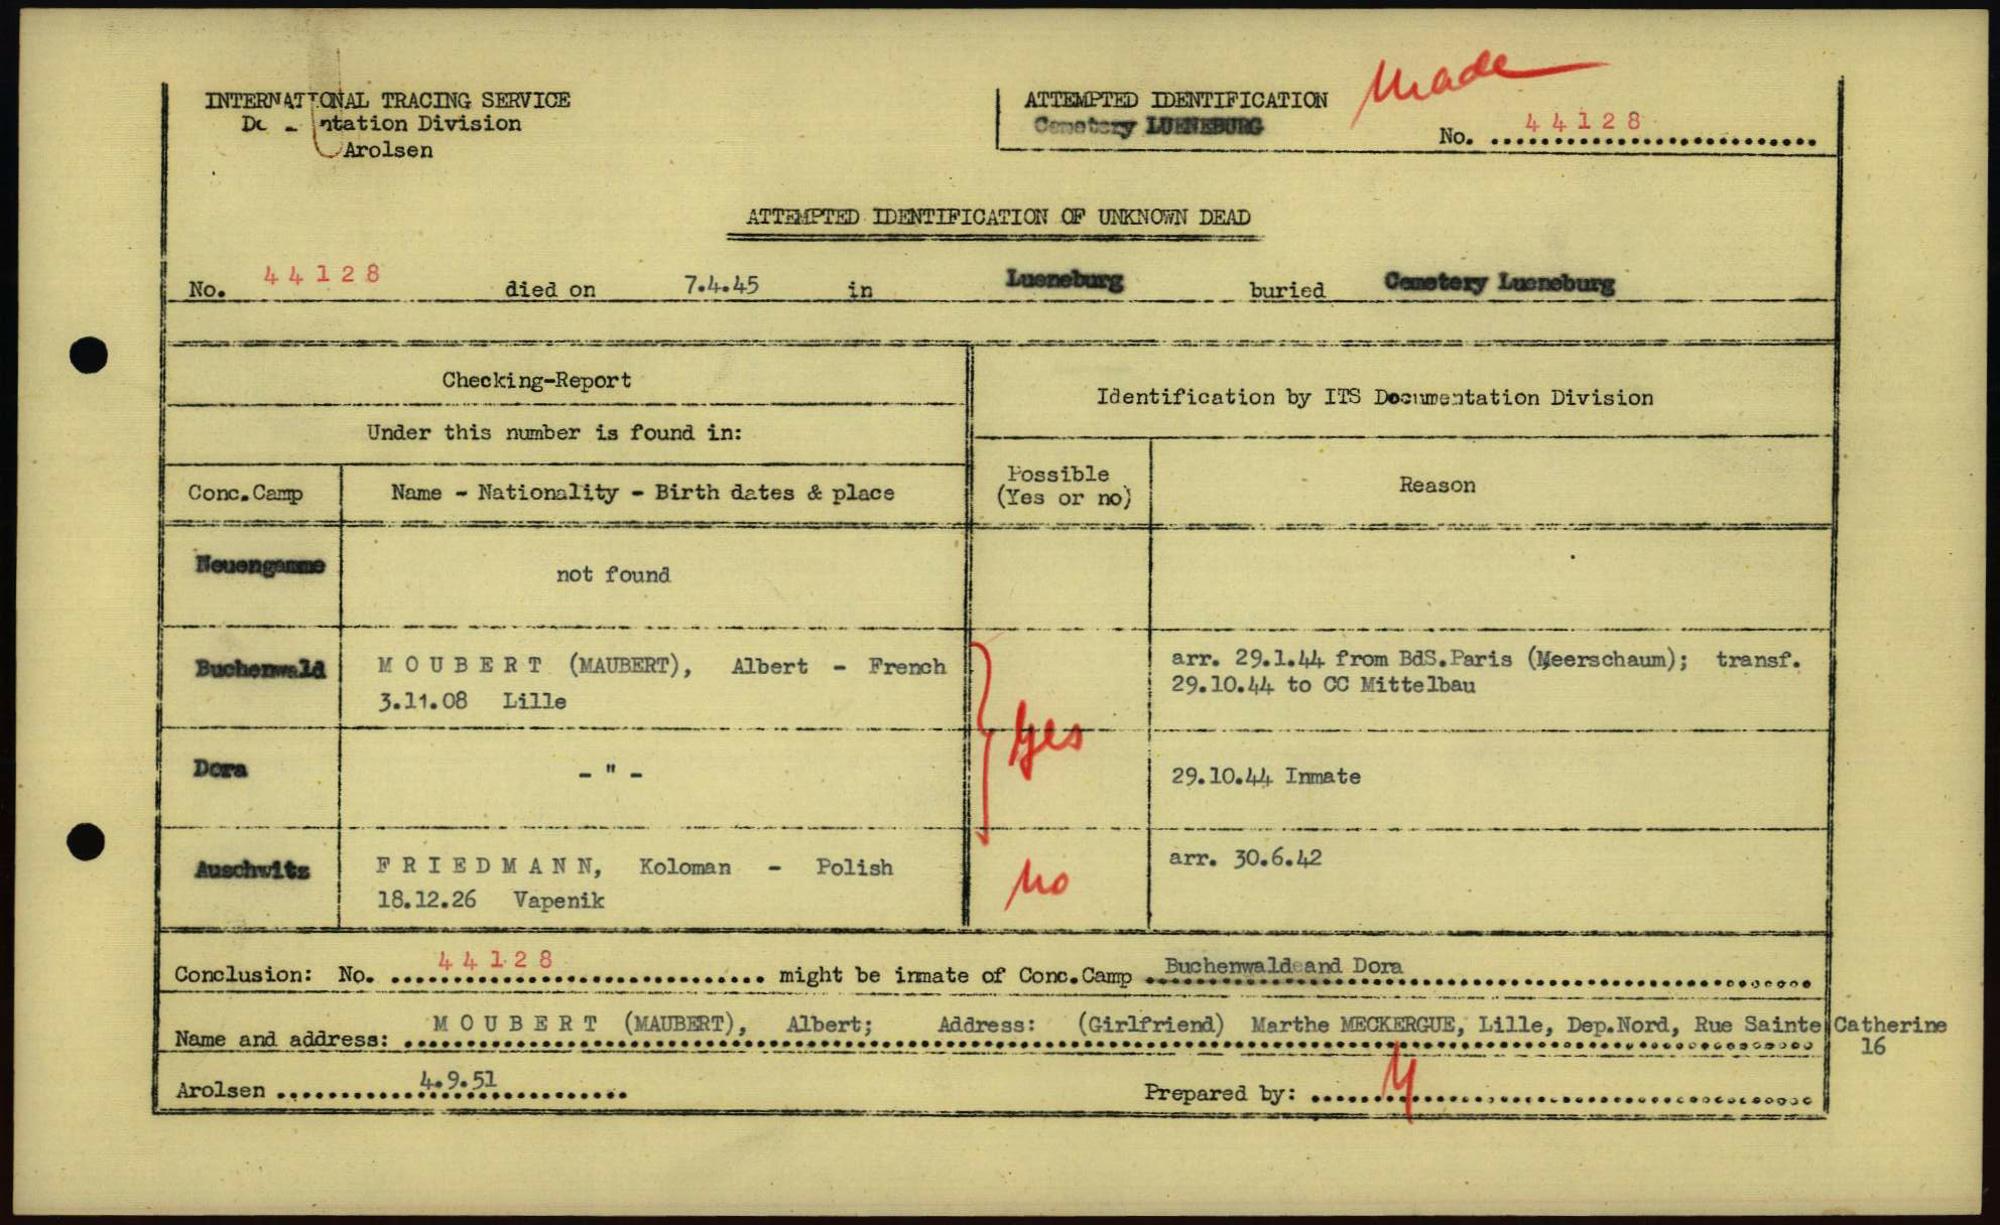 INTERNATIONAL TRACING SERVICE
ntation Division
Arolsen
ATTEMPTED IDENTIFICATION
Cemetery LUENEBURG
Made
No. 44128
ATTEMPTED IDENTIFICATION OF UNKNOWN DEAD
No. 44128 died on 7.4.45 in Lueneburg buried Cemetery Lueneburg
Checking-Report
Identification by ITS Documentation Division
Under this number is found in:
Conc.Camp Name - Nationality - Birth dates & place
Possible
(Yes or no)
Reason
Neuengamme not found
Buchenwald M O U B E R T (MAUBERT), Albert - French
3.11.08 Lille
yes
arr. 29.1.44 from BdS.Paris (Meerschaum); transf.
29.10.44 to CC Mittelbau
Dora - " - 29.10.44 Inmate
Auschwitz F R I E D M A N N, Koloman - Polish
18.12.26 Vapenik
no
arr. 30.6.42
Conclusion: No. 44128 might be inmate of Conc.Camp Buchenwald and Dora
Name and address: M O U B E R T (MAUBERT), Albert; Address: (Girlfriend) Marthe MECKERGUE, Lille, Dep.Nord, Rue Sainte Catherine
16
Arolsen 4.9.51 Prepared by: